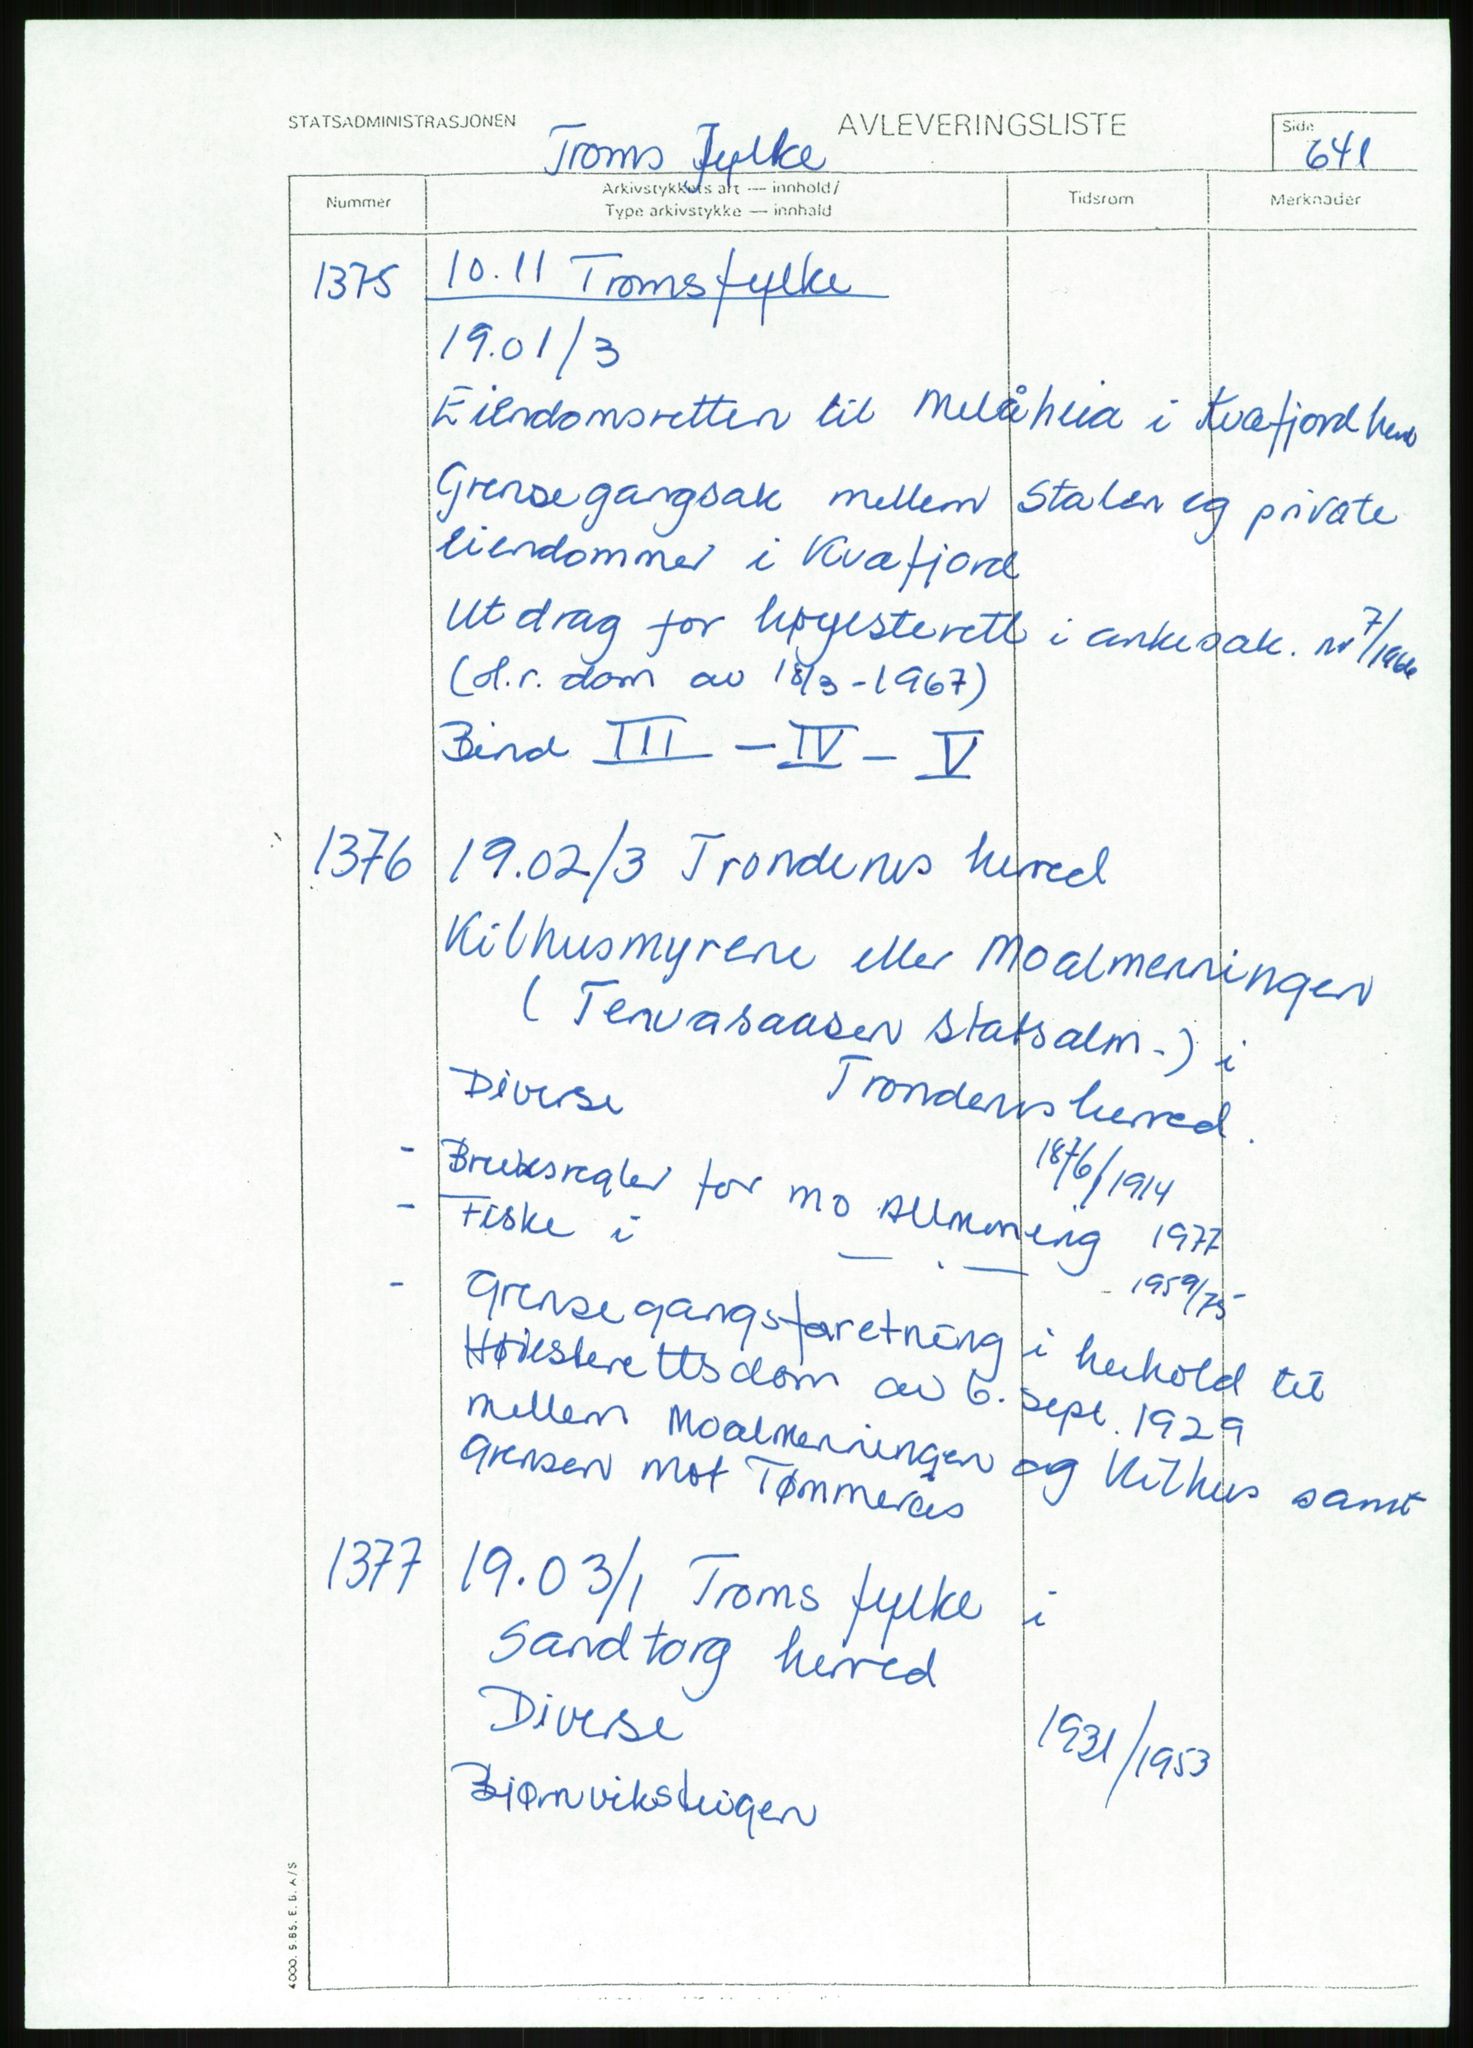 STATSADMINISTRASJONEN
AVLEVERINGSLISTE
Side
641
Troms fylke
Nummer
Arkivstykkets art — innhold/
Type arkivstykke — innhald
Tidsrom
Merknader
1375 10.11 Troms fylke
19.01/3
Eiendomsretten til Melåheia i Kvæfjord
Grensegangsak mellem Staten og private
eiendommer i Kvæfjord
Utdrag for høyesterett i ankesak. nr 7/1966
(H.r. dom av 18/3-1967)
Bind III – IV – V
1376 19.02/3 Trondenes herred
Kilhusmyrene eller Moalmenningen
(Tervasaasen statsalm-) i
Diverse Trondenes herred.
1876/1914
- Bruksregler for Mo Allmening 1977
- Fiske i — . — - 1959/75
- Grensegangsforetning i henhold til
Høiesterettsdom av 6. sept. 1929
mellem Moalmenningen og Kilhus samt
grensen mot Tømmerås
1377 19.03/1 Troms fylke i
Sandtorg herred
Diverse 1931/1953
Bjørnviksteigen
4000. 5.85. E. B. A/S